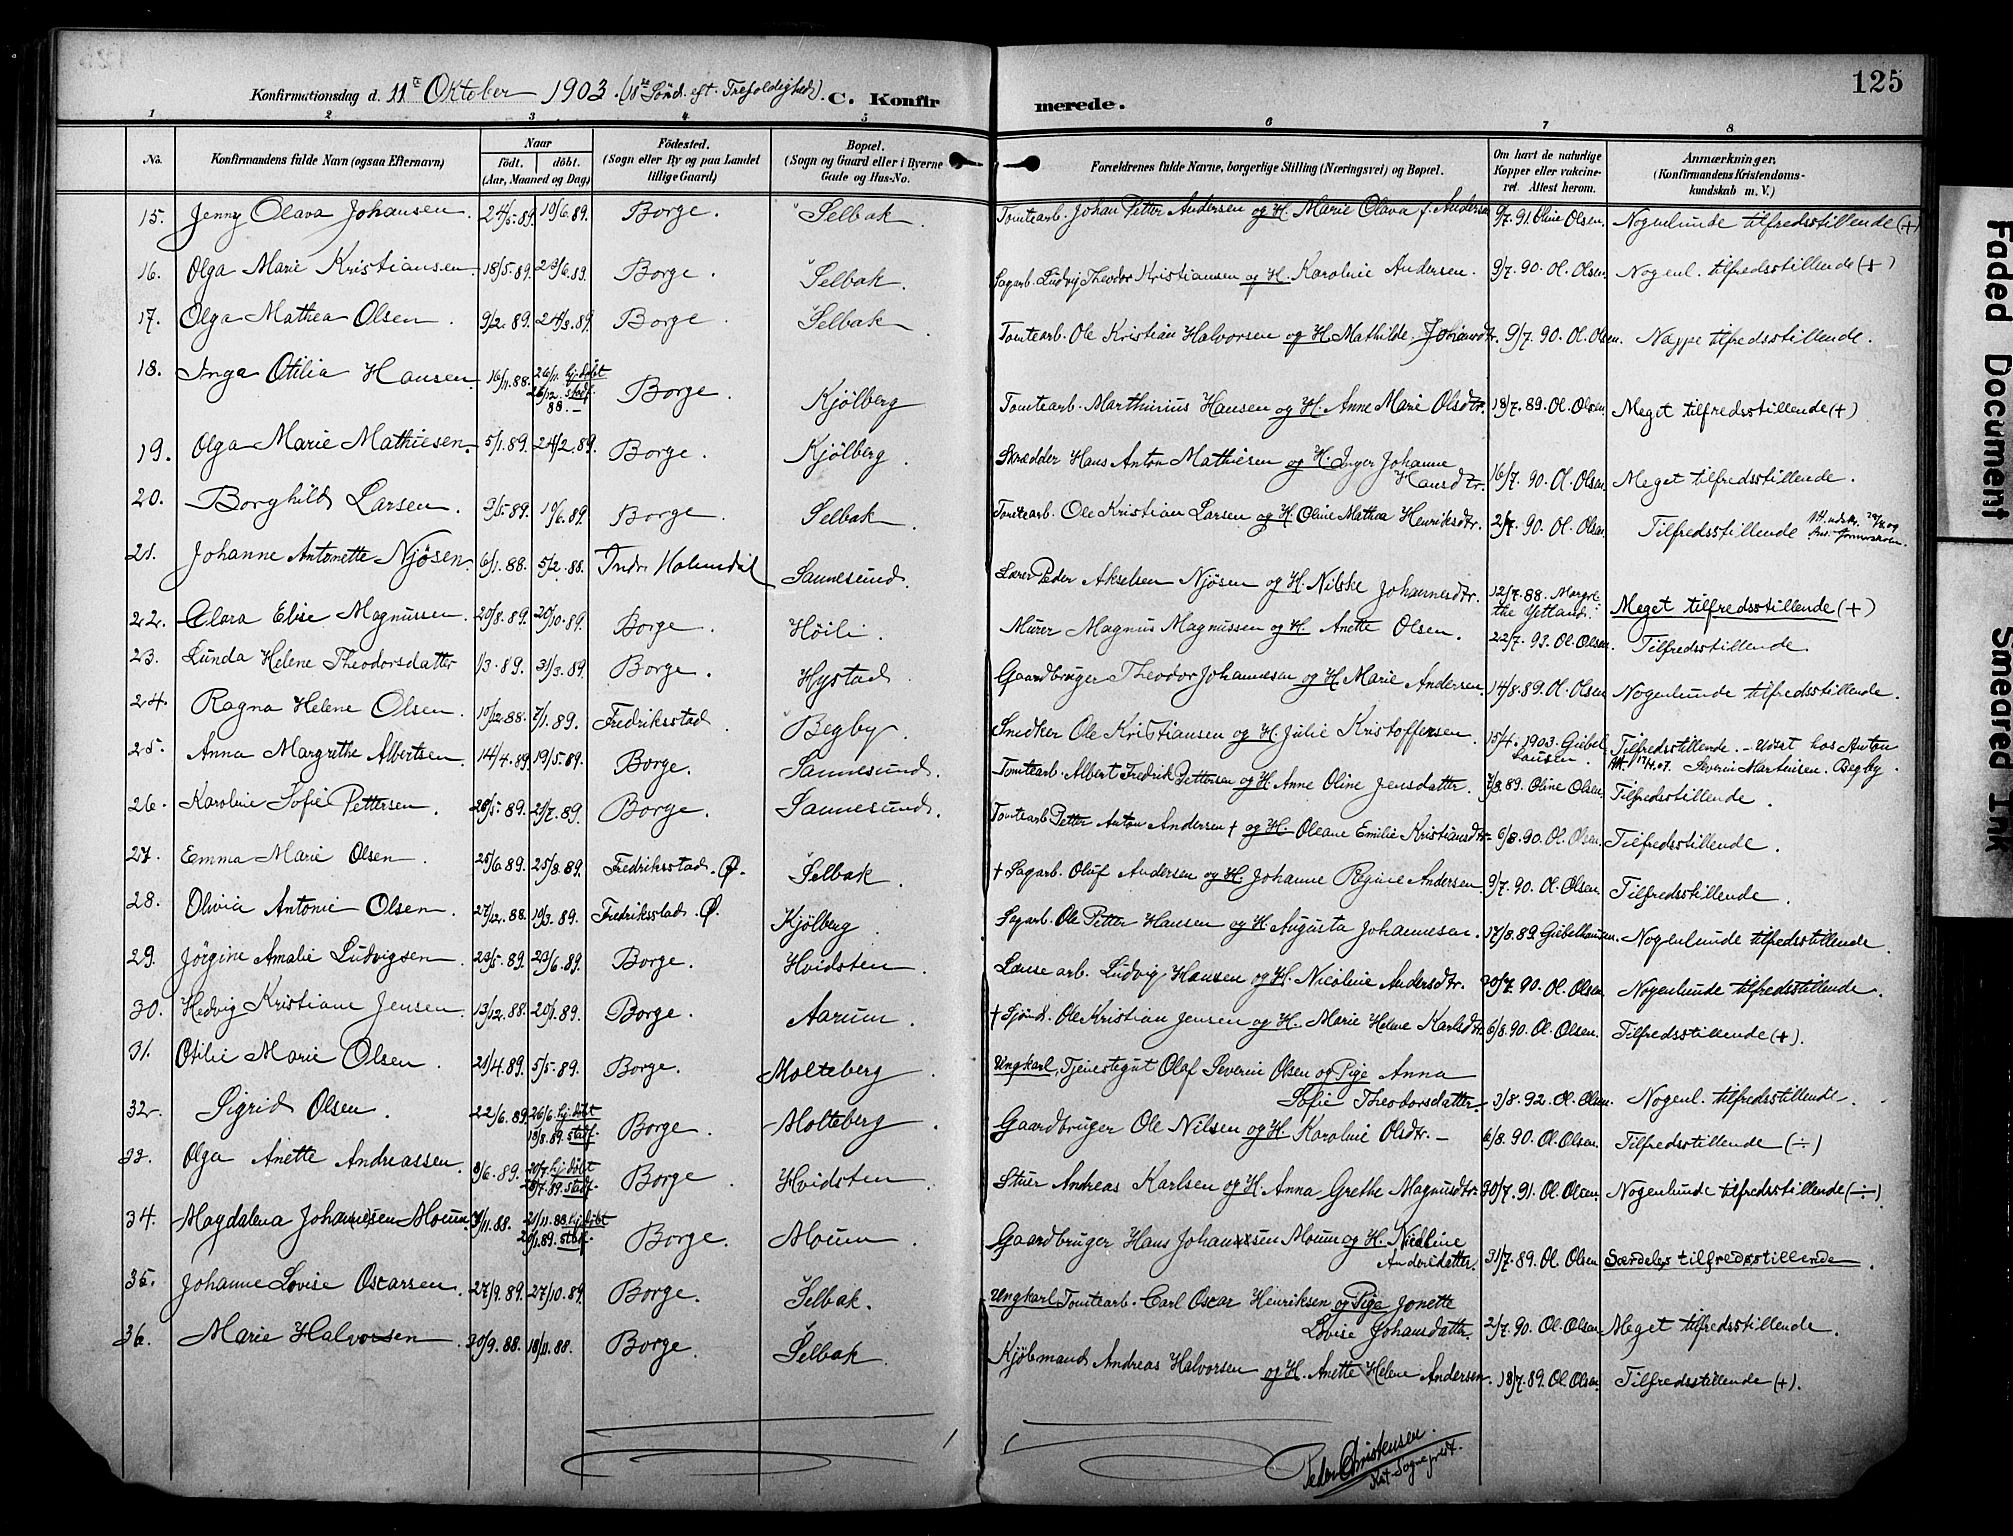 125
Konfirmationsdag d. 11te Oktober 1903. (18de Sönd. eft. Trefoldighed). C. Konfirmerede.
1 2 3 4 5 6 7 8
No. Konfirmandens fulde Navn (ogsaa Efternavn) Naar født. døbt. (Aar, Maaned og Dag) Fødested. (Sogn eller By og paa Landet tillige Gaard) Bopæl. (Sogn og Gaard eller i Byerne Gade og Hus-No. Forældrenes fulde Navne, borgerlige Stilling (Næringsvei) og Bopæl. Om havt de naturlige Kopper eller vaccineret. Attest herom. Anmærkninger. (Konfirmandens Kristendomskundskab m. V.)
15. Jenny Olava Johansen. 24/5.89. 10/6.89. Borge. Selbak. Tomtearb. Johan Petter Andersen og H. Marie Olava f. Andersen 9/7.91. Oline Olsen. Nogenlunde tilfredsstillende (+)
16. Olga Marie Kristiansen. 18/5.89. 29/6.89. Borge. Selbak. Sagarb. Ludvig Theodor Kristiansen og H. Karoline Andersen. 9/7.90. Ol. Olsen. Nogenl. tilfredsstillende (+)
17. Olga Mathea Olsen. 9/2.89. 24/3.89. Borge. Selbak. Tomtearb. Ole Kristian Halvorsen og H. Mathilde Johansdtr. 9/7.90. Ol. Olsen. Neppe tilfredsstillende.
18. Inga Otilia Hansen. 16/11.88. 26/11. hj.døbt 26/12. stadf. 88.- Borge. Kjölberg Tomtearb. Marthinius Hansen og H. Anne Marie Olsdtr. 18/7.89. Ol. Olsen. Meget tilfredsstillende (+)
19. Olga Marie Mathiesen. 5/1.89. 24/2.89. Borge. Kjölberg. Skrædder Hans Anton Mathiesen og H. Inger Johanne Hansdtr. 16/7.90. Ol. Olsen. Meget tilfredsstillende.
20. Borghild Larsen. 3/5.89. 10/6.89. Borge. Selbak. Tomtearb. Ole Kristian Larsen og H. Oline Mathea Henriksdtr. 2/7.90. Ol. Olsen. Tilfredsstillende
21. Johanne Antonette Njösen. 6/1.88. 5/2.88. Indr. Holmedal Sannesund. Lærer Peder Akselsen Njösen og H. Nilske Johannesdtr. 12/7.88. Margrethe Ytland. Meget tilfredsstillende (+)
22. Clara Elise Magnussen. 20/8.89. 20/10.89. Borge. Höili. Murer Magnus Magnussen og H. Anette Olsen. 22/7.93. Ol. Olsen. Tilfredsstillende.
23. Lunda Helene Theodorsdatter 1/3.89. 31/3.89. Borge. Hystad. Gaardbruger Theodor Johannesen og H. Marie Andersen. 14/8.89. Ol. Olsen Nogenlunde tilfredsstillende.
24. Ragna Helene Olsen. 10/12.88. 7/1.89. Fredriksstad. Begby. Snedker Ole Kristiansen og H. Julie Kristoffersen. 15/4.1903. Giebelhausen. Tilfredsstillende. - Udsat hos Anton Severin Martinisen. Begby.
25. Anna Margrethe Albertsen. 14/4.89. 19/5.89. Borge. Sannesund. Tomtearb. Albert Fredrik Pettersen og H. Anne Oline Jensdatter. 7/8.89. Oline Olsen. Att. 17/4.07. Tilfredsstillende.
26. Karoline Sofie Pettersen. 28/5.89. 21/7.89. Borge. Sannesund. Tomtearb. Petter Anton Andersen † og H. Oleane Emilie Kristiansdtr. 6/8.90. Ol. Olsen. Tilfredsstillende.
27. Emma Marie Olsen. 25/6.89. 25/8.89. Fredriksstad. Ø. Selbak. † Sagarb. Oluf Andersen og H. Johanne Regine Andersen. 9/7.90. Ol. Olsen. Tilfredsstillende.
28. Olivia Antonie Olsen. 27/12.88. 10/3.89. Fredriksstad. Ø. Kjölberg. Sagarb. Ole Petter Hansen og H. Augusta Johannesen. 17/8.89 Giebelhausen. Nogenlunde tilfredsstillende.
29. Jörgine Amalie Ludvigsen. 23/5.89. 23/6.89. Borge. Hvidsten. Lænsearb. Ludvig Hansen og H. Nicoline Andersdtr. 30/7.90. Ol. Olsen. Nogenlunde tilfredsstillende.
30. Hedvig Kristiane Jensen. 13/12.88. 20/1.89. Borge. Aarum. † Sjömd. Ole Kristian Jensen og H. Marie Helene Karlsdtr. 6/8.90. Ol. Olsen. Tilfredsstillende (+).
31. Otilie Marie Olsen. 21/4.89. 5/5.89. Borge. Molteberg. Ungkarl, Tjenestegut Olaf Severin Olsen og Pige Anna Sofie Theodorsdatter. 3/8.92. Ol. Olsen. Nogenl. tilfredsstillende.
32. Sigrid Olsen. 22/6.89. 26/6. hj.döbt 18/8.89. stadf. Borge. Molteberg. Gaardbruger Ole Nilsen og H. Karoline Olsdtr. - 6/8.90. Ol. Olsen. Tilfredsstillende (÷)
33. Olga Anette Andreassen. 8/6.89. 20/7. hj.döbt 28/7.89. stadf. Borge. Hvidsten. Stuer Andreas Karlsen og H. Anna Grethe Magnusdtr. 30/7.91. Ol. Olsen. Nogenlunde tilfredsstillende (÷).
34. Magdalena Johannesen Moum. 9/11.88. 21/11.88. hj.döbt 20/1.89. stadf. Borge. Moum. Gaardbruger Hans Johannesen Moum og H. Nicoline Andersdatter. 31/7.89. Ol. Olsen Særdeles tilfredsstillende.
35. Johanne Lovise Oscarsen. 27/9.89. 27/10.89. Borge. Selbak. Ungkarl Tomtearb. Carl Oscar Henriksen og Pige Jonette Lovise Johansdatter. 2/7.90. Ol. Olsen Meget tilfredsstillende.
36. Marie Halvorsen. 30/9.88. 18/11.88. Borge. Selbak. Kjöbmand Andreas Halvorsen og H. Anette Helene Andersen. 18/7.89. Ol. Olsen. Tilfredsstillende (+).
Peder Christensen.
Sogneprest.
Faded Document
Smeared Ink